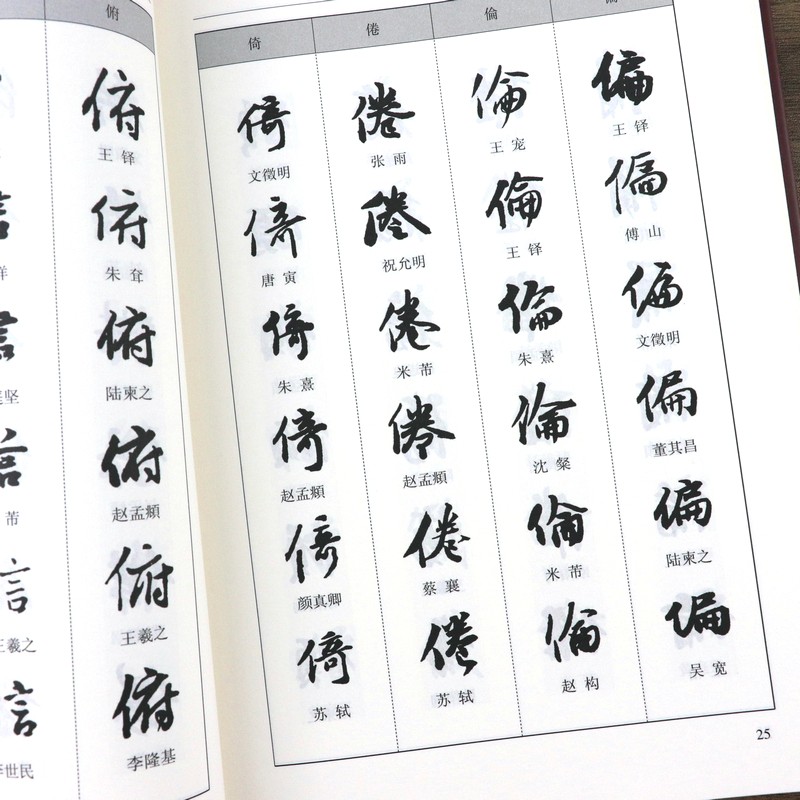 俯
俯
王铎
俯
朱耷
俯
陆柬之
俯
赵孟頫
俯
王羲之
俯
李隆基
倚
倚
文徵明
倚
唐寅
倚
朱熹
倚
赵孟頫
倚
颜真卿
倚
苏轼
倦
倦
张雨
倦
祝允明
倦
米芾
倦
赵孟頫
倦
蔡襄
倦
苏轼
倫
倫
王宠
倫
王铎
倫
朱熹
倫
沈粲
倫
米芾
倫
赵构
偏
王铎
偏
傅山
偏
文徵明
偏
董其昌
偏
陆柬之
偏
吴宽
25